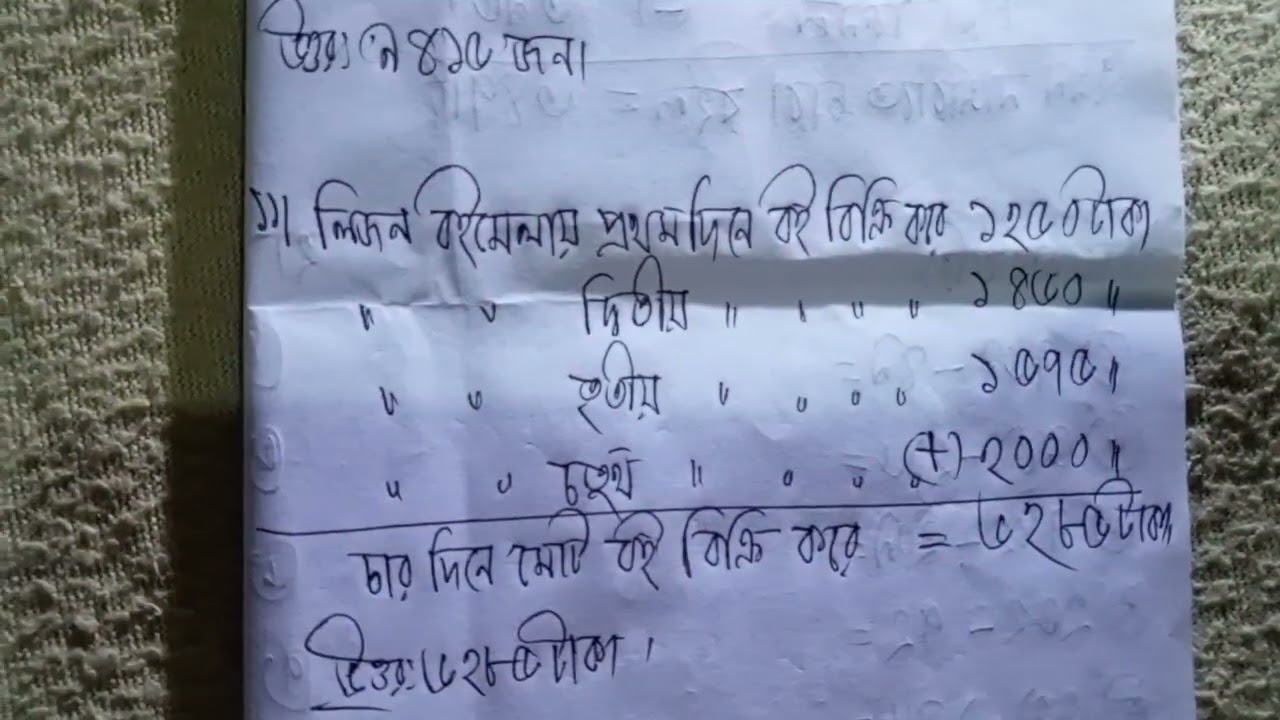 উত্তরঃ ৪১৫ জন।
১১। লিজন বইমেলায় প্রথম দিনে বই বিক্রি করে ১২৫০ টাকা
" " দ্বিতীয় " " " " ১৪৬০ "
" " তৃতীয় " " " " ১৫৭৫ "
" " চতুর্থ " " " " (+) ২০০০ "
চার দিনে মোট বই বিক্রি করে = ৬২৮৫ টাকা
উত্তরঃ ৬২৮৫ টাকা।